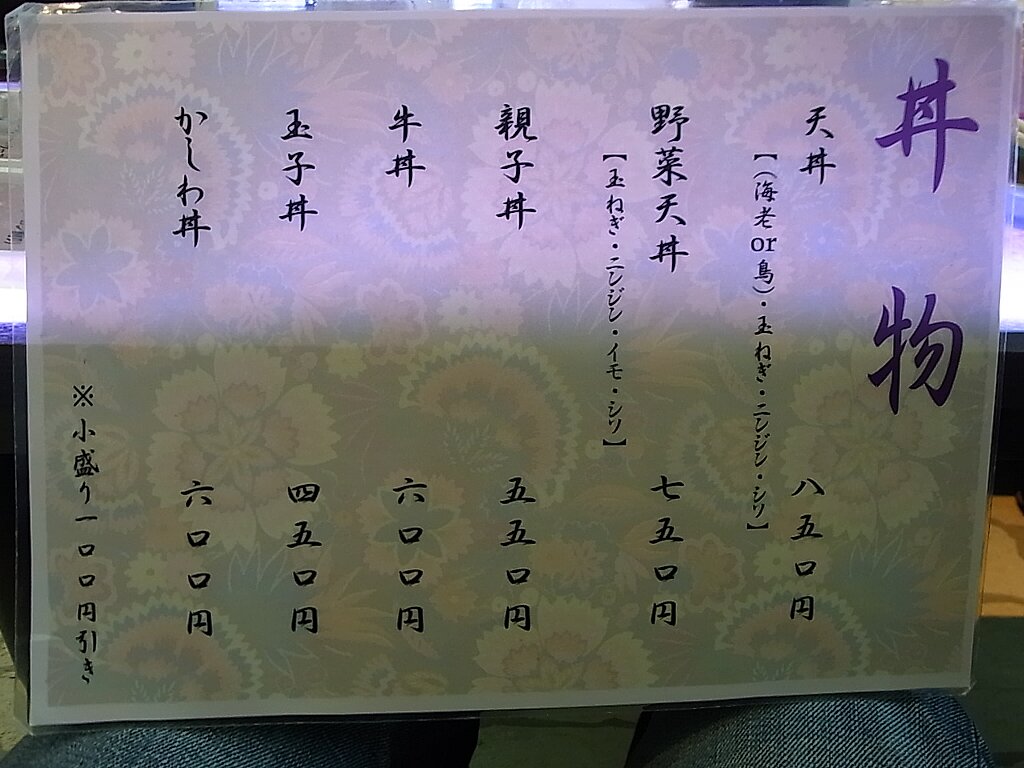 丼物
天丼 八五〇円
【(海老or鳥)・玉ねぎ・ニンジン・シソ】
野菜天丼 七五〇円
【玉ねぎ・ニンジン・イモ・シソ】
親子丼 五五〇円
牛丼 六〇〇円
玉子丼 四五〇円
かしわ丼 六〇〇円
※小盛り一〇〇円引き